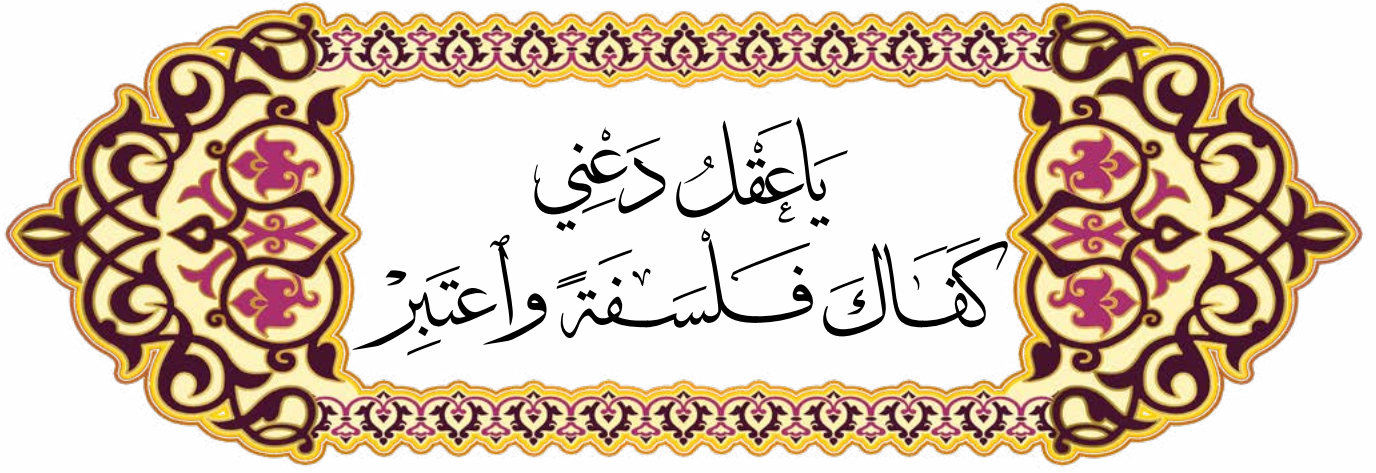 يَاعَقْلُ دَعْنِي
كَفَاكَ فَلْسَفَةً وٱعتَبِرْ